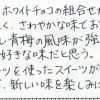 ホワイトチョコの組合せが
く、さわやかな味でお
し青梅の風味が強
好きな味だと思う。
ツを使ったスイーツが
ず、新しい味を楽しみに